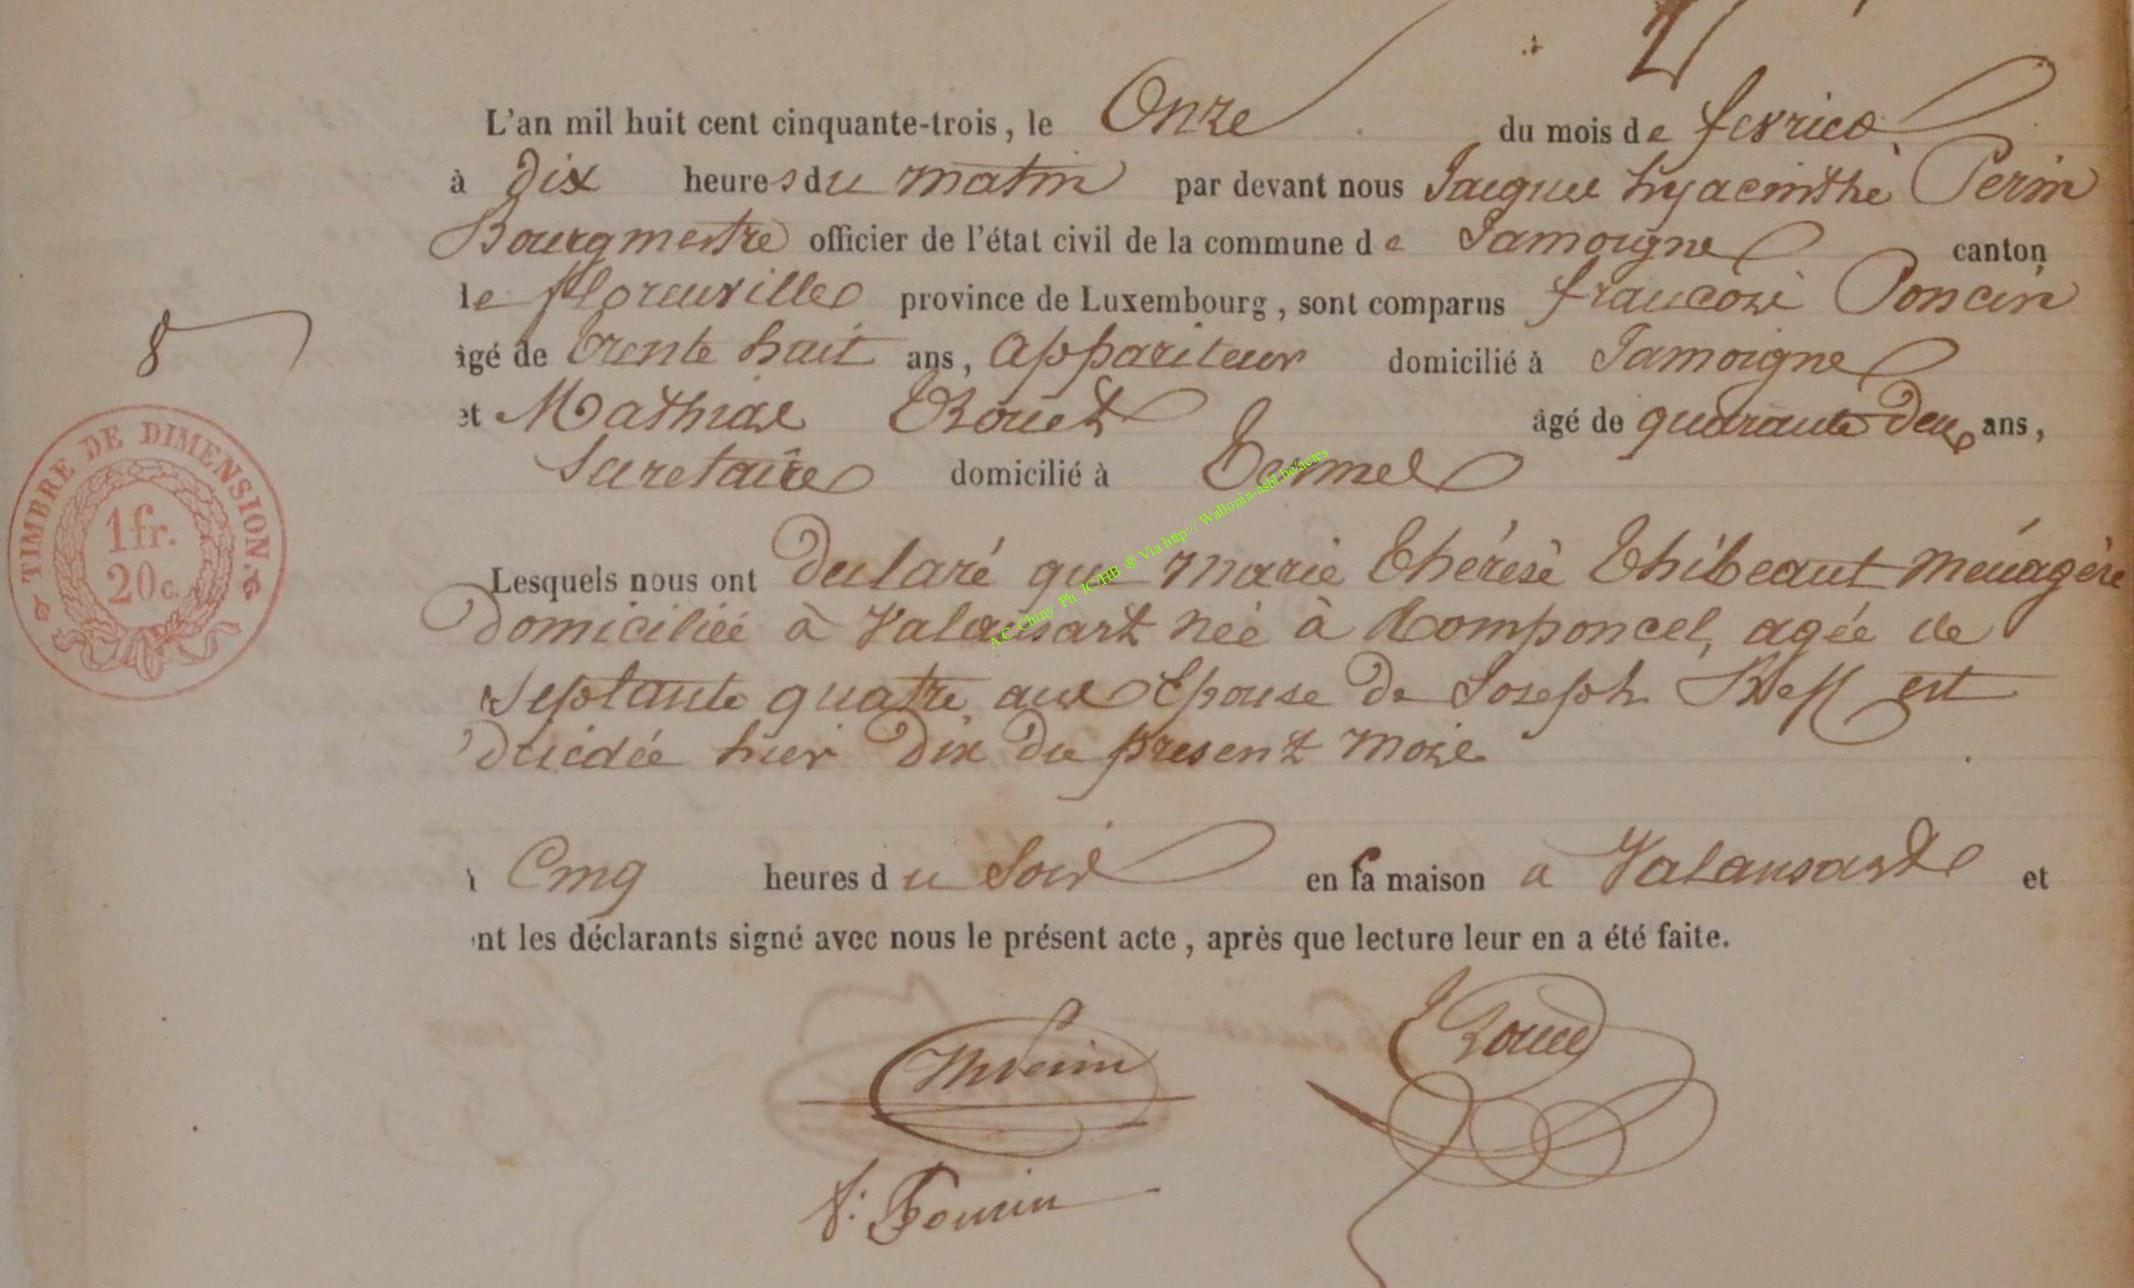 L'an mil huit cent cinquante-trois, le Onze du mois de fevrier
à Dix heures du matin par devant nous Jacques hyacinthe Perin
Bourgmestre officier de l'état civil de la commune de Jamoigne canton
le florenville province de Luxembourg, sont comparus francois Poncin
âgé de trente huit ans, appariteur domicilié à Jamoigne
et Mathias âgé de quarante deux ans,
Secretaire domicilié à Termes
8
TIMBRE DE DIMENSION.
1fr.
20c.
Lesquels nous ont declaré que marie thérèse thibeaut menagère
Domiciliée à Valansart née à Romponcel, agée de
Septante quatre ans Epouse de Joseph est
décédée hier Dix du present mois
Cinq heures du Soir en sa maison a Valansart et
nt les déclarants signé avec nous le présent acte, après que lecture leur en a été faite.
f: Poncin
A.C. Chiny Ph JC/HB @ Via http://Wallonia-asbl.be/actes